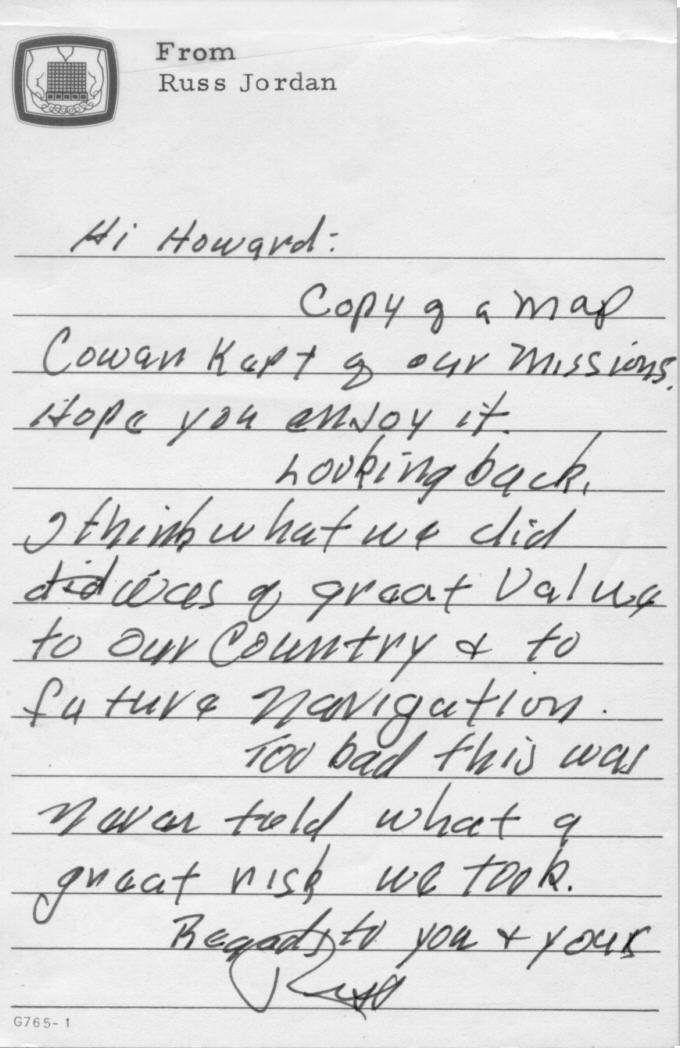 From
Russ Jordan
Hi Howard:
Copy of a map
Cowan Kept of our missions.
Hope you enjoy it.
Looking back,
I think what we did
did was of great value
to our Country & to
future navigation.
Too bad this was
never told what a
great risk we took.
Regards to you & yours
Russ
G765-1